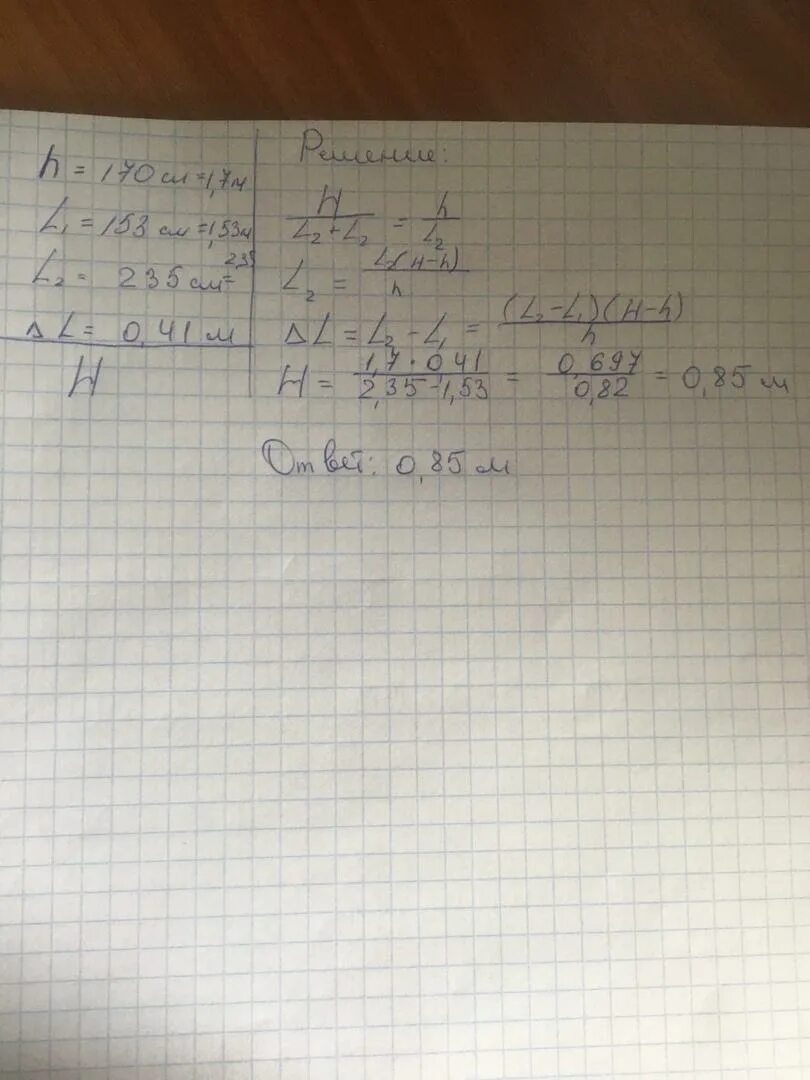 h = 170 см = 1,7 м
L₁ = 153 см = 1,53 м
L₂ = 235 см = 2,35
Δ L = 0,41 м
H
Решение:
H / (L₂ + L₂) = h / L₂
L₂ = L₂(H-h) / h
Δ L = L₂ - L₁ = (L₂ - L₁)(H - h) / h
H = 1,7 · 0 41 / 2,35 - 1,53 = 0,697 / 0,82 = 0,85 м
Ответ: 0,85 м